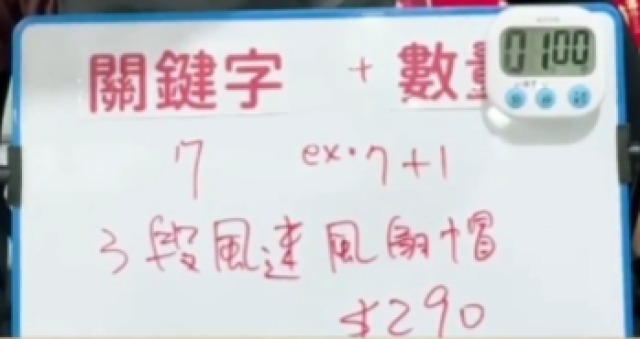 關鍵字 + 數量
01:00
7 ex. 7+1
3段風速風扇帽
$290